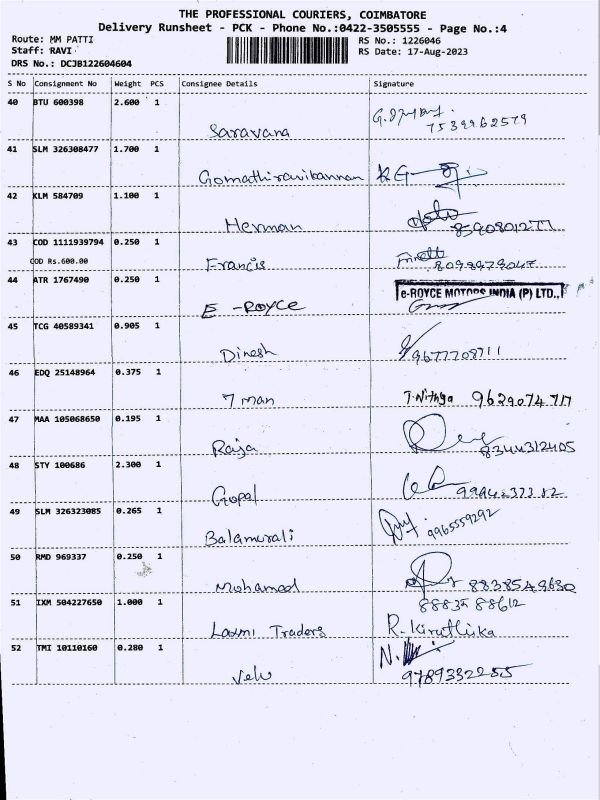 THE PROFESSIONAL COURIERS, COIMBATORE
Delivery Runsheet - PCK - Phone No.:0422-3505555 - Page No.:4
Route: MM PATTI RS No.: 1226046
Staff: RAVI RS Date: 17-Aug-2023
DRS No.: DCJB122604604
S No Consignment No Weight PCS Consignee Details Signature
40 BTU 600398 2.600 1
Saravana 7539962579
41 SLM 326308477 1.700 1
Gomathiravikannan
42 KLM 584709 1.100 1
Herman 8590801277
43 COD 1111939794 0.250 1
COD Rs.600.00
Francis 8098979047
44 ATR 1767490 0.250 1
e-ROYCE MOTORS INDIA (P) LTD.,
E-ROYCE
45 TCG 40589341 0.905 1
Dinesh 9677708711
46 EDQ 25148964 0.375 1
7 man T.Nithya 9629074717
47 MAA 105068650 0.195 1
Raja 8344312405
48 STY 100686 2.300 1
Gopal
49 SLM 326323085 0.265 1
Balamurali 9965559292
50 RMD 969337 0.250 1
Mohamed 8838549630
51 IXM 504227650 1.000 1
88835 88612
Laxmi Traders R. Kiruthika
52 TMI 10110160 0.280 1
Velu 9789332255